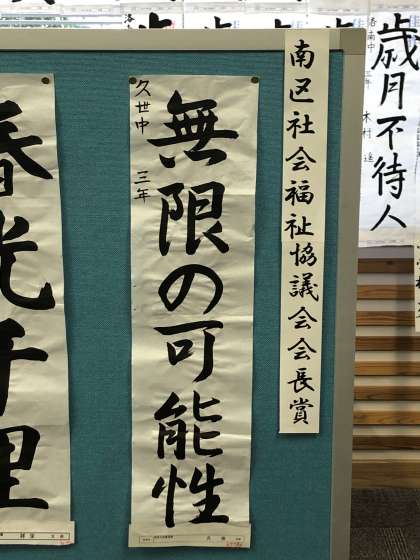 歳月不待人
洛南中 三年 木村
南区社会福祉協議会会長賞
無限の可能性
久世中 三年
春光千里